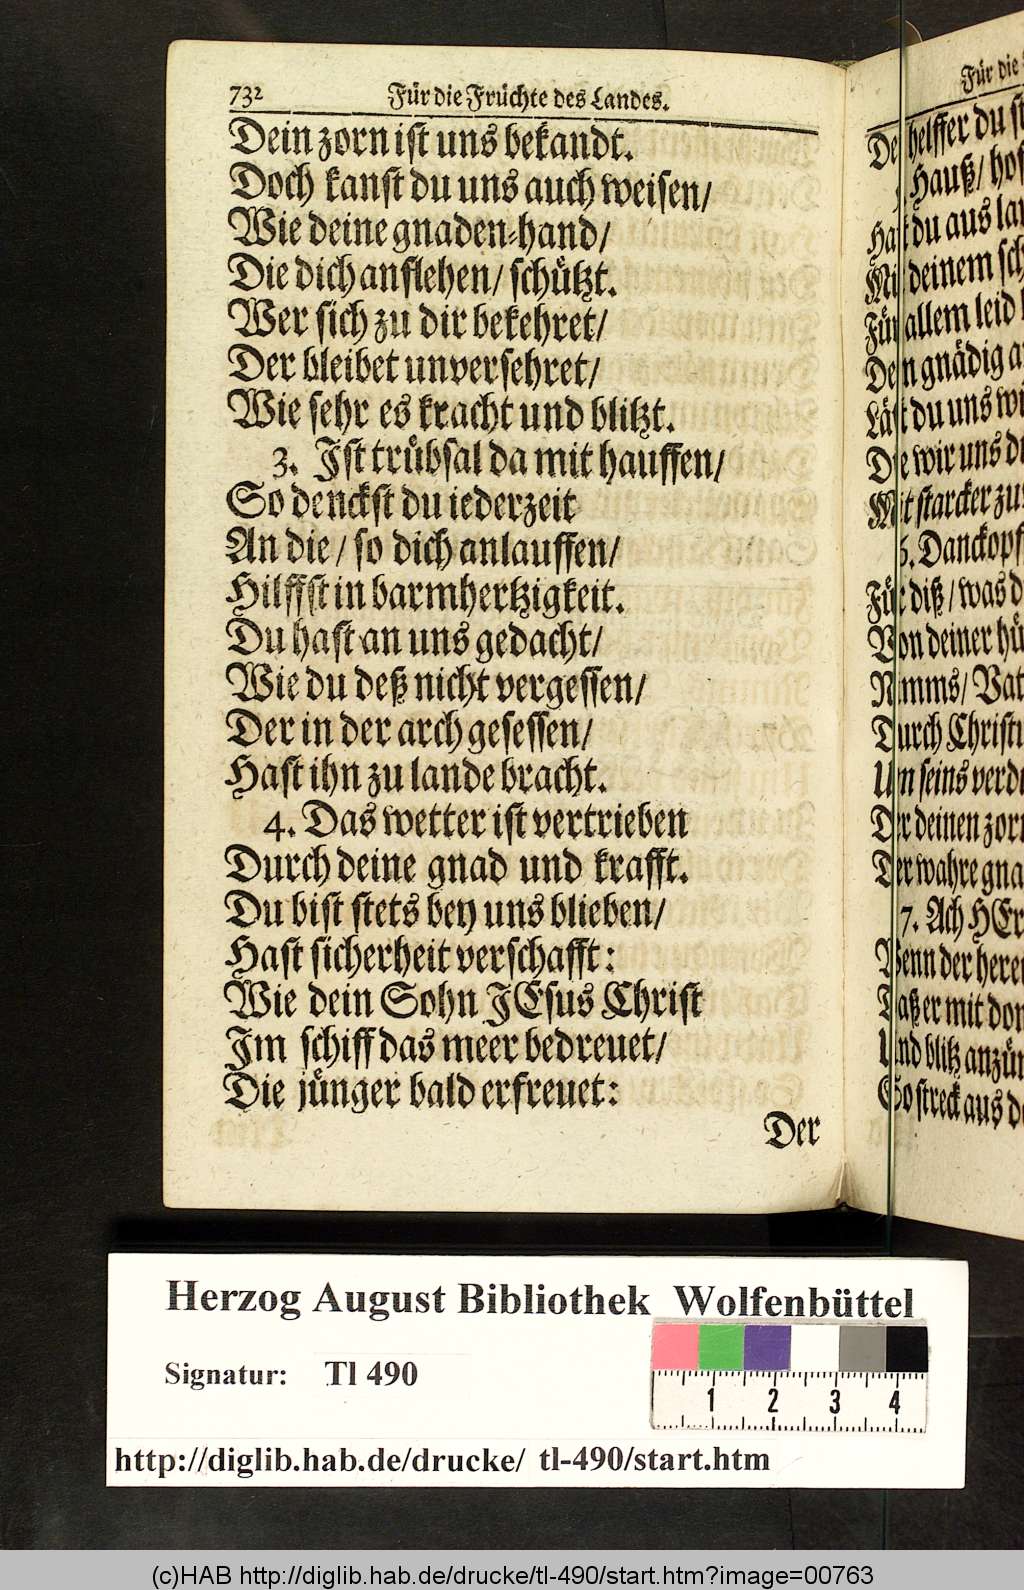 732 Für die Früchte des Landes.
Dein zorn ist uns bekandt.
Doch kanst du uns auch weisen/
Wie deine gnaden-hand/
Die dich anflehen/ schützt.
Wer sich zu dir bekehret/
Der bleibet unversehret/
Wie sehr es kracht und blitzt.
3. Ist trübsal da mit hauffen/
So denckst du iederzeit
An die/ so dich anlauffen/
Hilffst in barmhertzigkeit.
Du hast an uns gedacht/
Wie du deß nicht vergessen/
Der in der arch gesessen/
Hast ihn zu lande bracht.
4. Das wetter ist vertrieben
Durch deine gnad und krafft.
Du bist stets bey uns blieben/
Hast sicherheit verschafft:
Wie dein Sohn JEsus Christ
Im schiff das meer bedreuet/
Die jünger bald erfreuet:
Der
Für die
helffer du
Hauß/
du aus
deinem
allem leid
gnädig
du uns
wir uns
starcker
6.
diß/ was
Von deiner
Vat
Durch Christi
seins
deinen zorn
wahre
7. Ach HEr
Wenn der
Daß er mit
Und blitz
So streck aus
Herzog August Bibliothek Wolfenbüttel
Signatur: Tl 490
1 2 3 4
http://diglib.hab.de/drucke/ tl-490/start.htm
(c)HAB http://diglib.hab.de/drucke/tl-490/start.htm?image=00763